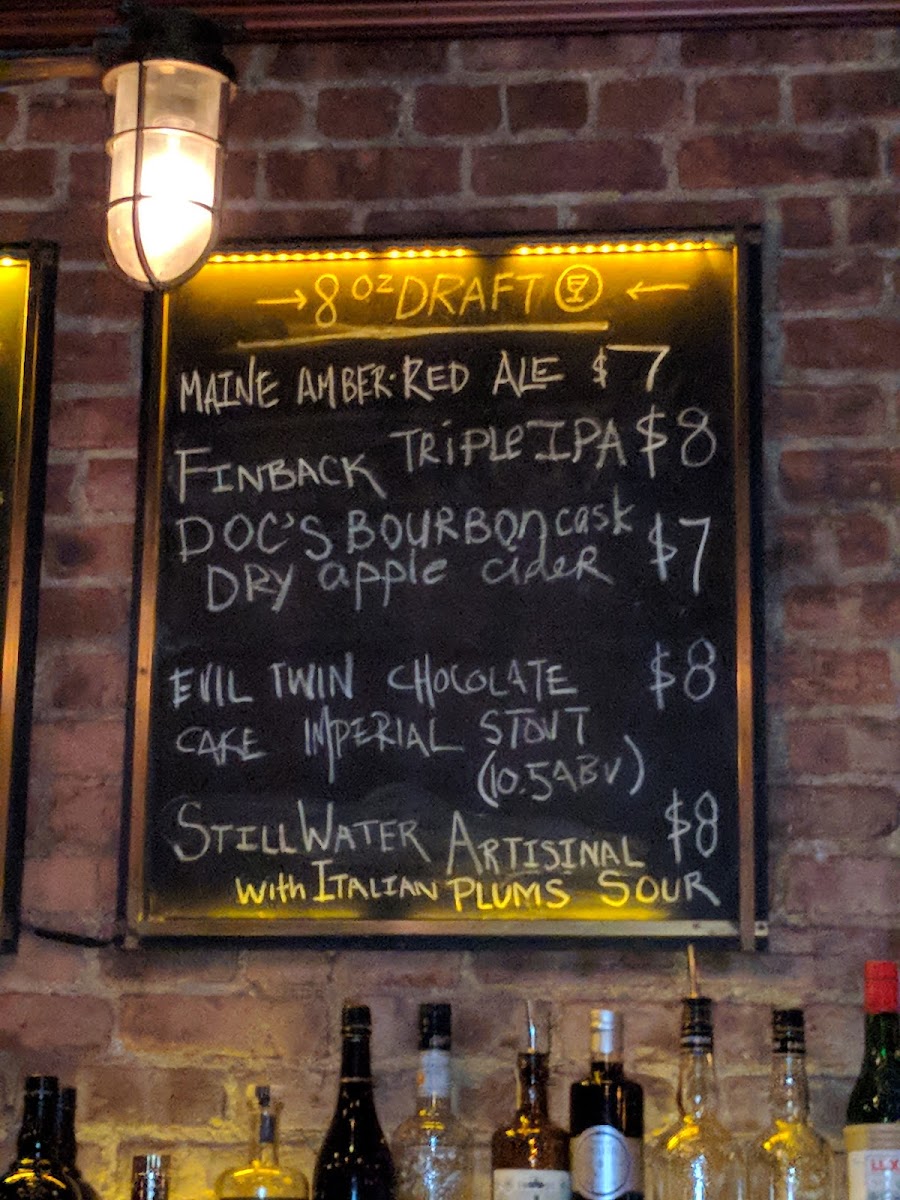 → 8 OZ DRAFT ←
MAINE AMBER·RED ALE $7
FINBACK TRIPLE IPA $8
DOC'S BOURBON cask
DRY apple cider $7
EVIL TWIN CHOCOLATE $8
CAKE IMPERIAL STOUT
(10.5ABV)
STILLWATER ARTISINAL $8
with ITALIAN PLUMS SOUR